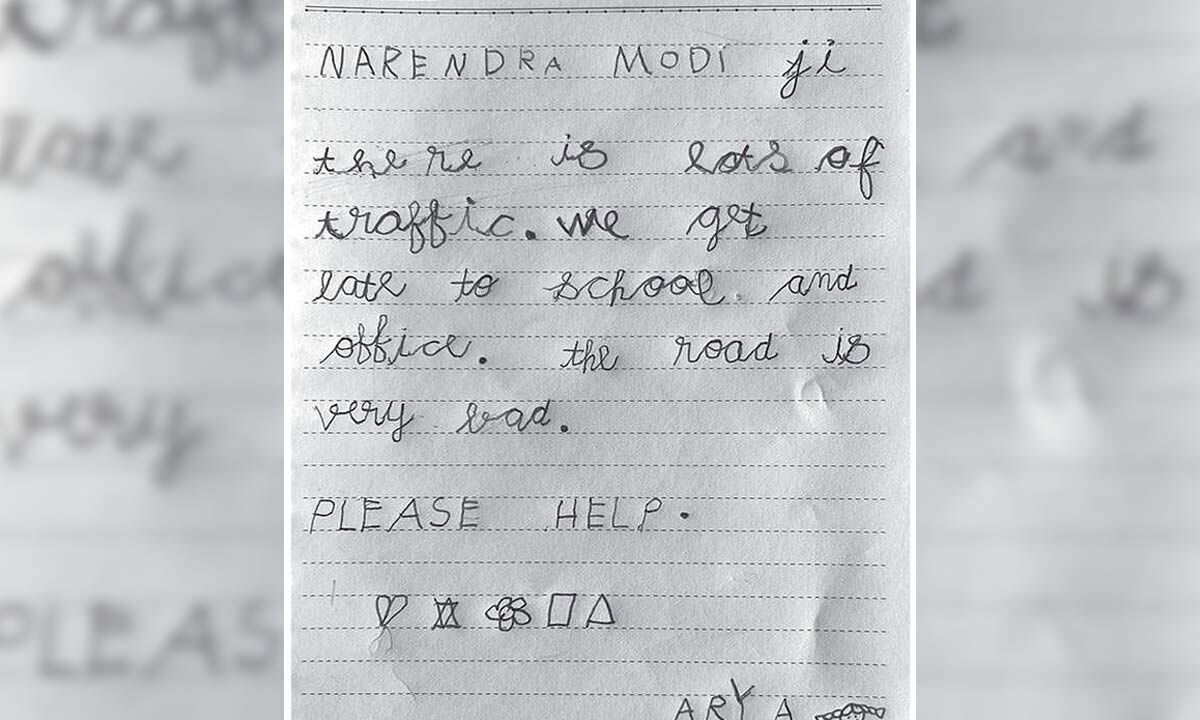 NARENDRA MODI ji
there is lots of
traffic. we get
late to school. and
office. the road is
very bad.
PLEASE HELP.
ARYA